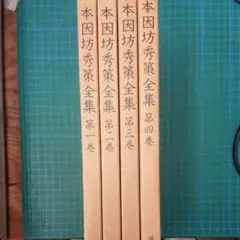 本因坊秀策全集 第一巻
本因坊秀策全集 第二巻
本因坊秀策全集 第三巻
本因坊秀策全集 第四巻